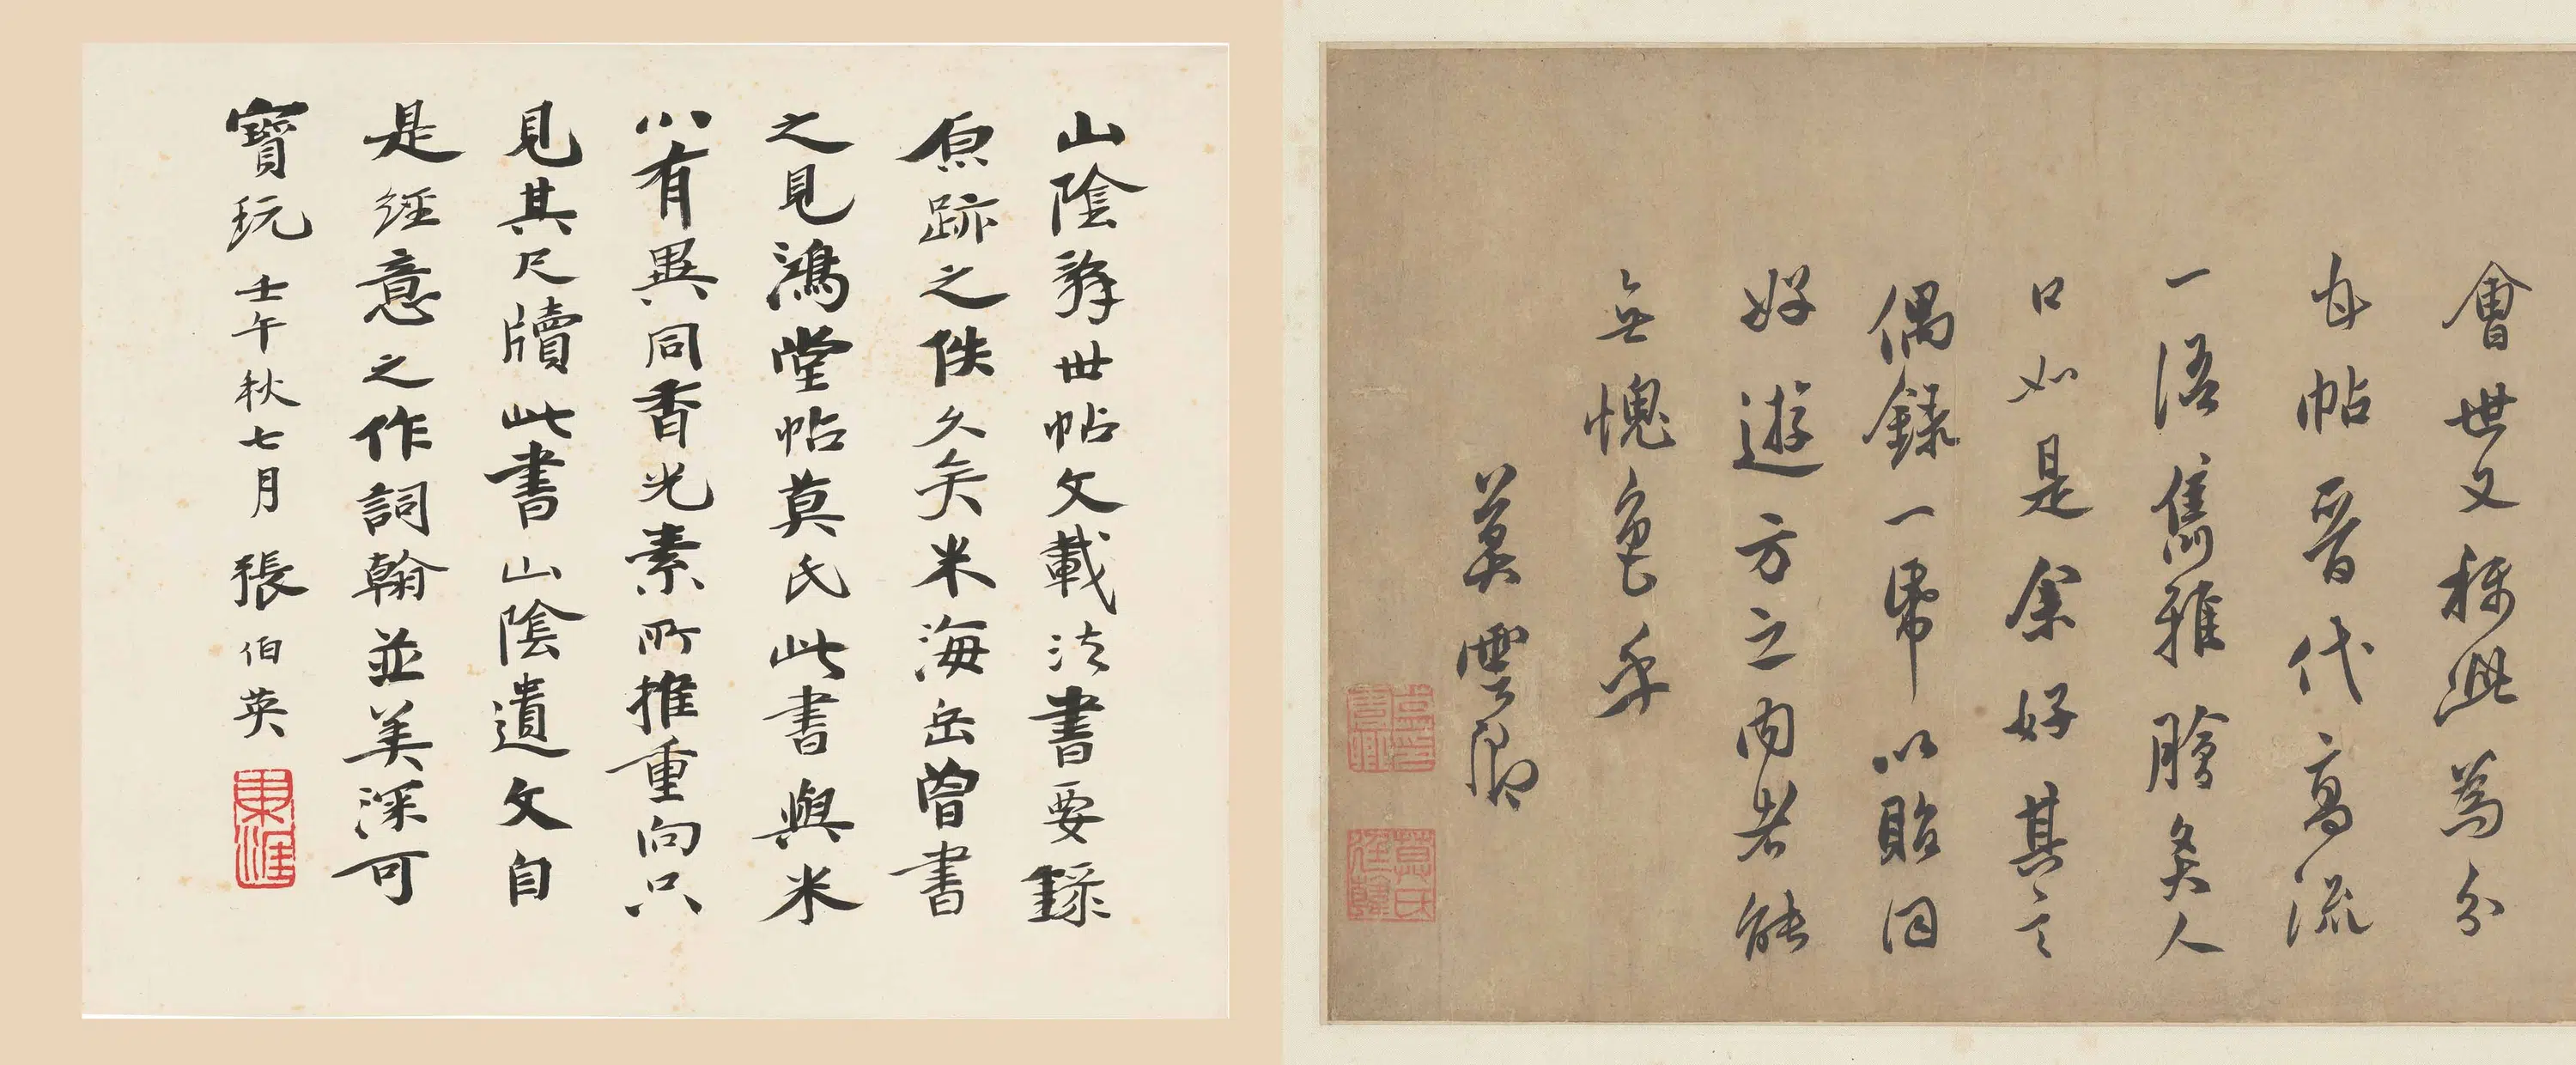 會世文稱此爲分
自帖晉代高流
一語雋雅膾炙人
口如是余好其言
偶錄一帋以貽同
好遊方之內者能
無愧色乎
莫雲卿
莫氏廷韓
山陰辭世帖文載法書要錄
原跡之佚久矣米海岳曾書
之見鴻堂帖莫氏此書與米
小有異同香光素所推重向只
見其尺牘此書山陰遺文自
是經意之作詞翰並美深可
寶玩壬午秋七月張伯英
東涯